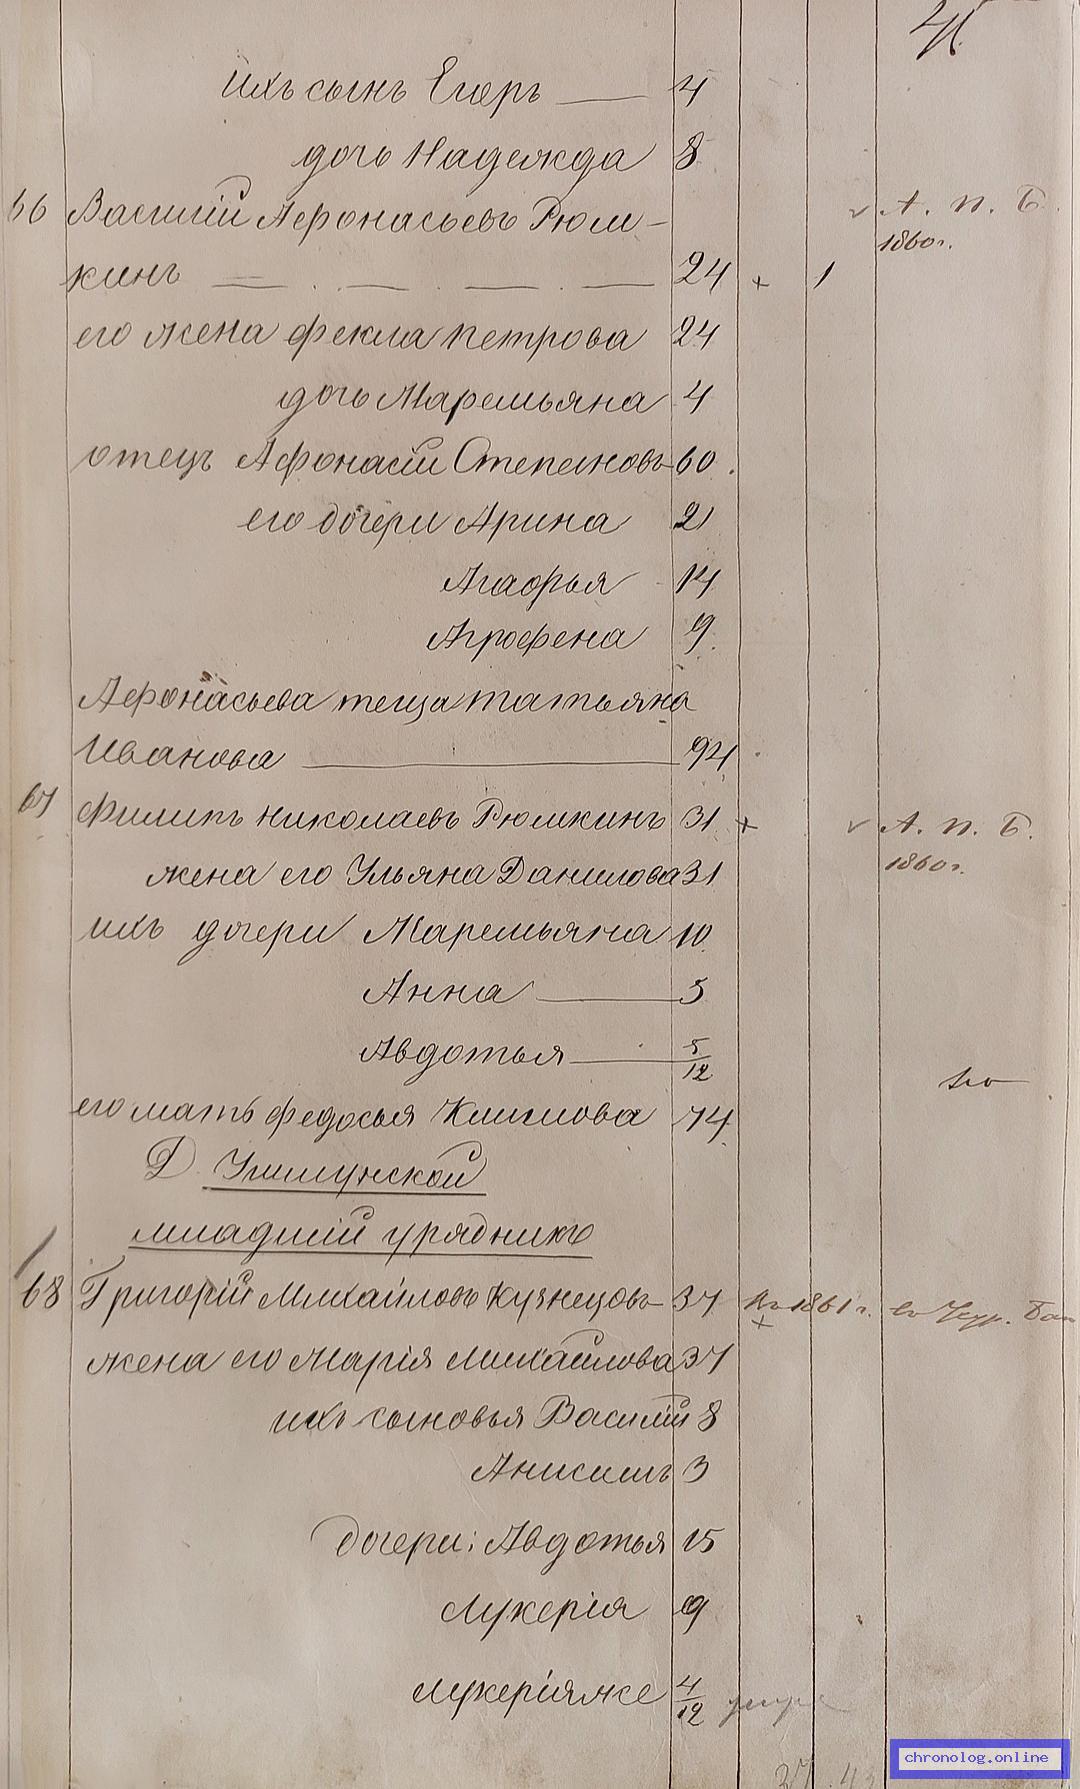 ихъ сынъ Егоръ — 4
дочь Надежда 8
66 Василій Афонасьевъ Рюм-
1860г.
кинъ 24 + 1
его жена Фекла Петрова 24
дочь Маремьяна 4
отецъ Афонасій Степановъ 60.
его дочери Арина 21
Агафья 14
Агрофена 9.
Афонасьева теща Татьяна
Иванова 94
67 Филипъ Николаевъ Рюмкинъ 31 + v А. П. Б.
1860г.
жена его Ульяна Данилова 31
ихъ дочери Маремьяна 10
Анна 5
Авдотья 5/12
его мать Федосья 74
Д.
младшій урядникъ
68 Григорій Михайловъ Кузнецовъ 37 1861 г.
+
жена его Марія Михайлова 37
ихъ сыновья Василій 8
Анисимъ 3
дочери: Авдотья 15
Лукерія 9
Лукерія же 4/12
chronolog.online